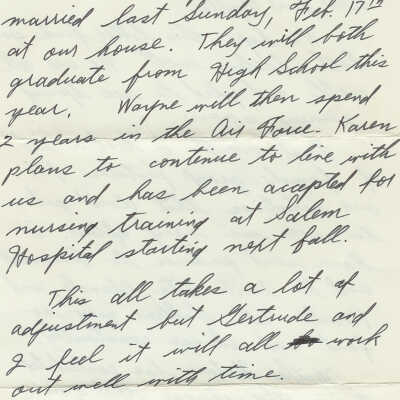 married last Sunday, Feb. 17th
at our house. They will both
graduate from High School this
year. Wayne will then spend
2 years in the Air Force. Karen
plans to continue to live with
us and has been accepted for
nursing training at Salem
Hospital starting next fall.
This all takes a lot of
adjustment but Gertrude and
I feel it will all work
out well with time.